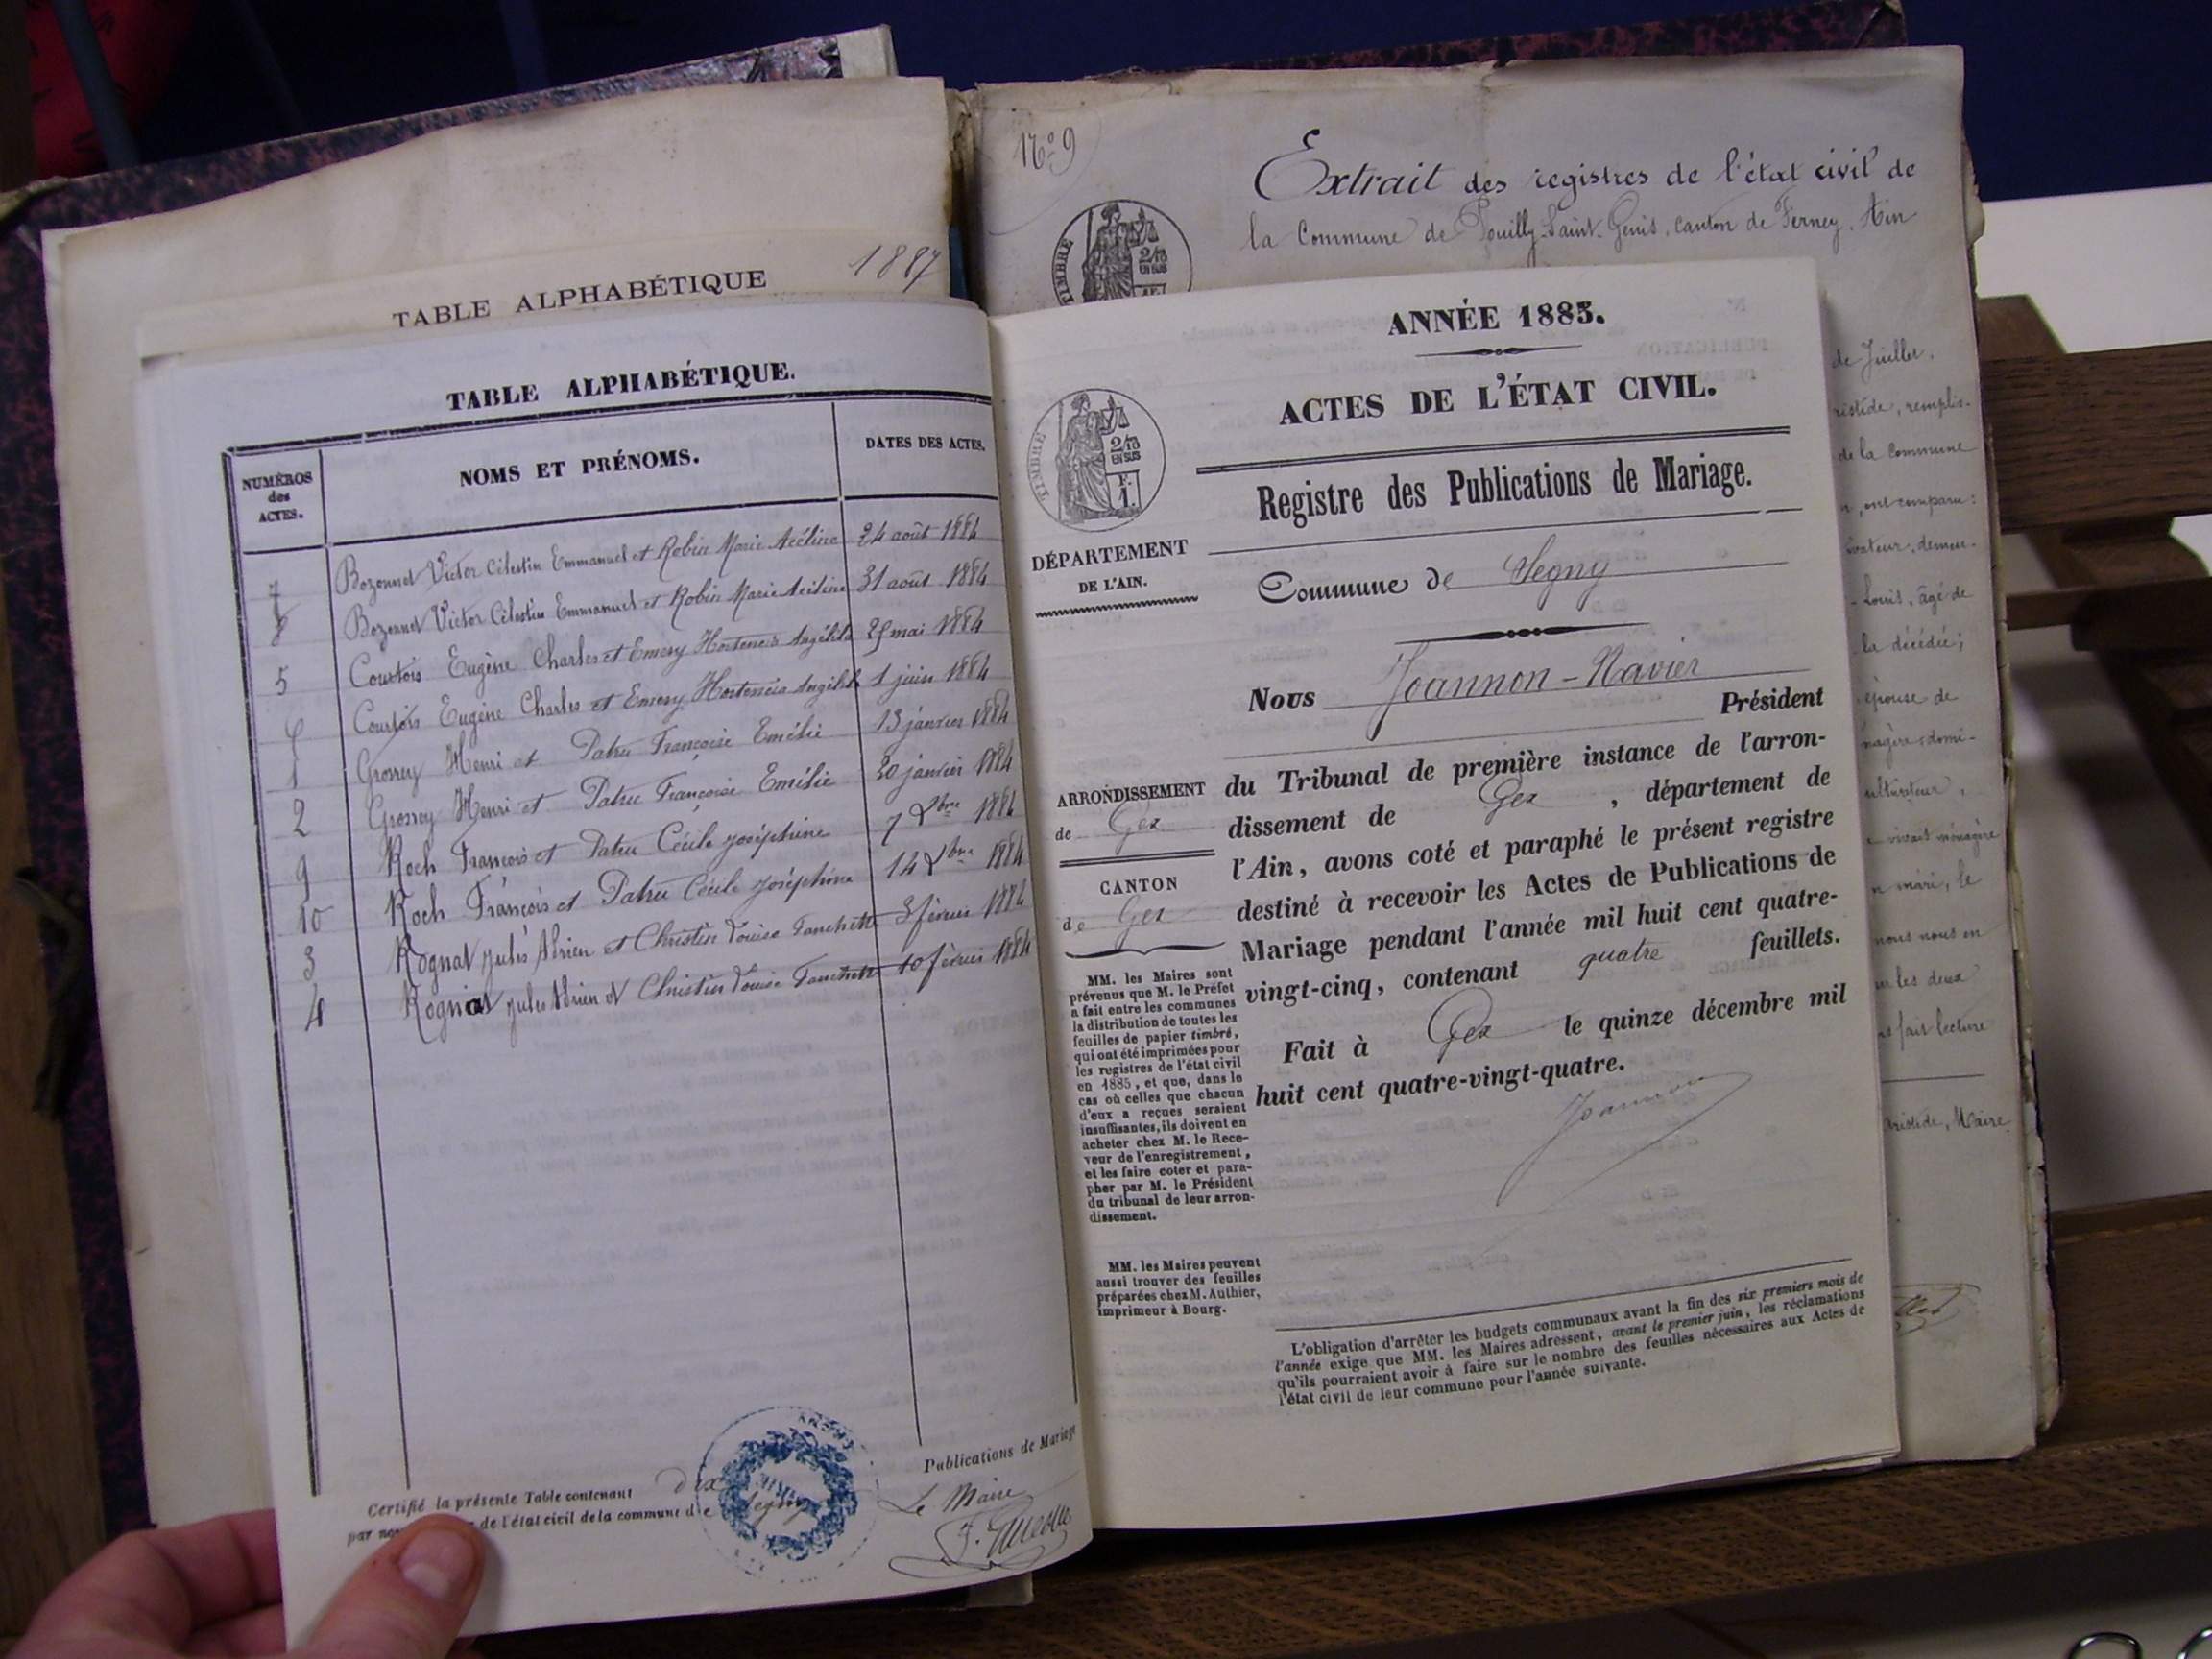 1887
TABLE ALPHABÉTIQUE
TABLE ALPHABÉTIQUE.
NUMÉROS
des
ACTES.
NOMS ET PRÉNOMS.
DATES DES ACTES.
7 Bozonnet Victor Célestin Emmanuel et Robin Marie 24 août 1884
8 Bozonnet Victor Célestin Emmanuel et Robin Marie 31 août 1884
5 Courtois Eugène Charles et Emery mai 1884
Courtois Eugène Charles et Emery 1 juin 1884
1 Grossey Henri et Patru Françoise Emélie 13 janvier 1884
2 Grossey Henri et Patru Françoise Emélie 20 janvier 1884
9 Roch François et Patru Cécile Joséphine 7 Xbre 1884
10 Roch François et Patru Cécile Joséphine 14 Xbre 1884
3 Rognat Jules Adrien et Christin Louise Fanchette 3 février 1884
4 Rognat Jules Adrien et Christin Louise Fanchette 10 février 1884
Certifié la présente Table contenant dix Publications de Mariage
par de l'état civil de la commune de Segny
Le Maire
N° 9
Extrait des registres de l'état civil de
la Commune de Pouilly-Saint-Genis, canton de Ferney, Ain
TIMBRE
2/10
EN SUS
de Juillet,
remplis-
de la commune
ont comparu:
demeu-
Louis, âgé de
la décédée;
épouse de
domi-
ménagère
mari, le
nous nous en
les deux
fait lecture
Aristide, Maire
ANNÉE 1885.
ACTES DE L'ÉTAT CIVIL.
TIMBRE
2/10
EN SUS
F.
1.
Registre des Publications de Mariage.
DÉPARTEMENT
DE L'AIN.
Commune de Segny
Nous Joannon-Navier
Président
ARRONDISSEMENT
de Gex
CANTON
de Gex
du Tribunal de première instance de l'arron-
dissement de Gex, département de
l'Ain, avons coté et paraphé le présent registre
destiné à recevoir les Actes de Publications de
Mariage pendant l'année mil huit cent quatre-
vingt-cinq, contenant quatre feuillets.
Fait à Gex le quinze décembre mil
huit cent quatre-vingt-quatre.
Joannon
MM. les Maires sont
prévenus que M. le Préfet
a fait entre les communes
la distribution de toutes les
feuilles de papier timbré,
qui ont été imprimées pour
les registres de l'état civil
en 1885, et que, dans le
cas où celles que chacun
d'eux a reçues seraient
insuffisantes, ils doivent en
acheter chez M. le Rece-
veur de l'enregistrement,
et les faire coter et para-
pher par M. le Président
du tribunal de leur arron-
dissement.
MM. les Maires peuvent
aussi trouver des feuilles
préparées chez M. Authier,
imprimeur à Bourg.
L'obligation d'arrêter les budgets communaux avant la fin des six premiers mois de
l'année exige que MM. les Maires adressent, avant le premier juin, les réclamations
qu'ils pourraient avoir à faire sur le nombre des feuilles nécessaires aux Actes de
l'état civil de leur commune pour l'année suivante.